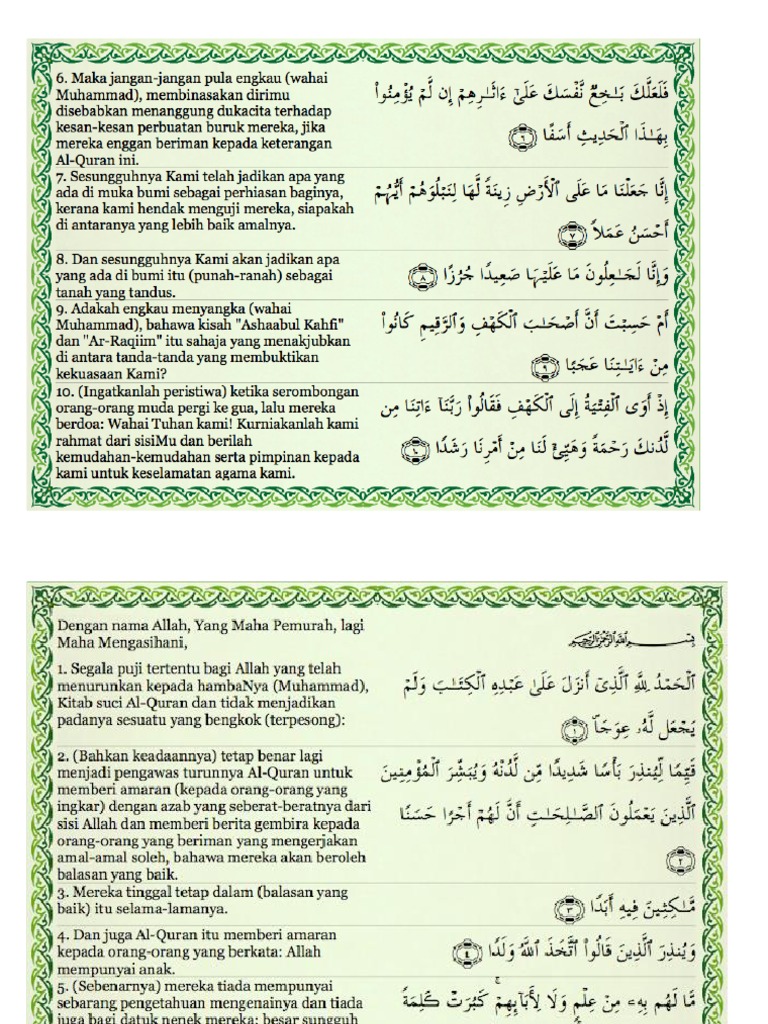 6. Maka jangan-jangan pula engkau (wahai
Muhammad), membinasakan dirimu
disebabkan menanggung dukacita terhadap
kesan-kesan perbuatan buruk mereka, jika
mereka enggan beriman kepada keterangan
Al-Quran ini.
فَلَعَلَّكَ بَـٰخِعٌ نَّفْسَكَ عَلَىٰٓ ءَاثَـٰرِهِمْ إِن لَّمْ يُؤْمِنُوا۟
بِهَـٰذَا ٱلْحَدِيثِ أَسَفًا ٦
7. Sesungguhnya Kami telah jadikan apa yang
ada di muka bumi sebagai perhiasan baginya,
kerana kami hendak menguji mereka, siapakah
di antaranya yang lebih baik amalnya.
إِنَّا جَعَلْنَا مَا عَلَى ٱلْأَرْضِ زِينَةً لَّهَا لِنَبْلُوَهُمْ أَيُّهُمْ
أَحْسَنُ عَمَلًا ٧
8. Dan sesungguhnya Kami akan jadikan apa
yang ada di bumi itu (punah-ranah) sebagai
tanah yang tandus.
وَإِنَّا لَجَـٰعِلُونَ مَا عَلَيْهَا صَعِيدًا جُرُزًا ٨
9. Adakah engkau menyangka (wahai
Muhammad), bahawa kisah "Ashaabul Kahfi"
dan "Ar-Raqiim" itu sahaja yang menakjubkan
di antara tanda-tanda yang membuktikan
kekuasaan Kami?
أَمْ حَسِبْتَ أَنَّ أَصْحَـٰبَ ٱلْكَهْفِ وَٱلرَّقِيمِ كَانُوا۟
مِنْ ءَايَـٰتِنَا عَجَبًا ٩
10. (Ingatkanlah peristiwa) ketika serombongan
orang-orang muda pergi ke gua, lalu mereka
berdoa: Wahai Tuhan kami! Kurniakanlah kami
rahmat dari sisiMu dan berilah
kemudahan-kemudahan serta pimpinan kepada
kami untuk keselamatan agama kami.
إِذْ أَوَى ٱلْفِتْيَةُ إِلَى ٱلْكَهْفِ فَقَالُوا۟ رَبَّنَآ ءَاتِنَا مِن
لَّدُنكَ رَحْمَةً وَهَيِّئْ لَنَا مِنْ أَمْرِنَا رَشَدًا ١٠
Dengan nama Allah, Yang Maha Pemurah, lagi
Maha Mengasihani,
بِسْمِ ٱللَّهِ ٱلرَّحْمَـٰنِ ٱلرَّحِيمِ
1. Segala puji tertentu bagi Allah yang telah
menurunkan kepada hambaNya (Muhammad),
Kitab suci Al-Quran dan tidak menjadikan
padanya sesuatu yang bengkok (terpesong):
ٱلْحَمْدُ لِلَّهِ ٱلَّذِىٓ أَنزَلَ عَلَىٰ عَبْدِهِ ٱلْكِتَـٰبَ وَلَمْ
يَجْعَل لَّهُۥ عِوَجَاۜ ١
2. (Bahkan keadaannya) tetap benar lagi
menjadi pengawas turunnya Al-Quran untuk
memberi amaran (kepada orang-orang yang
ingkar) dengan azab yang seberat-beratnya dari
sisi Allah dan memberi berita gembira kepada
orang-orang yang beriman yang mengerjakan
amal-amal soleh, bahawa mereka akan beroleh
balasan yang baik.
قَيِّمًا لِّيُنذِرَ بَأْسًا شَدِيدًا مِّن لَّدُنْهُ وَيُبَشِّرَ ٱلْمُؤْمِنِينَ
ٱلَّذِينَ يَعْمَلُونَ ٱلصَّـٰلِحَـٰتِ أَنَّ لَهُمْ أَجْرًا حَسَنًا
٢
3. Mereka tinggal tetap dalam (balasan yang
baik) itu selama-lamanya.
مَّـٰكِثِينَ فِيهِ أَبَدًا ٣
4. Dan juga Al-Quran itu memberi amaran
kepada orang-orang yang berkata: Allah
mempunyai anak.
وَيُنذِرَ ٱلَّذِينَ قَالُوا۟ ٱتَّخَذَ ٱللَّهُ وَلَدًا ٤
5. (Sebenarnya) mereka tiada mempunyai
sebarang pengetahuan mengenainya dan tiada
juga bagi datuk nenek mereka; besar sungguh
مَّا لَهُم بِهِۦ مِنْ عِلْمٍ وَلَا لِـَٔابَآئِهِمْ ۚ كَبُرَتْ كَلِمَةً